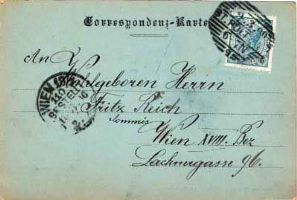 Correspondenz-Karte
An
Wohlgeboren Herrn
Fritz Reich
Commis
Wien XVIII. Bez
Lacknergasse 96.
WIEN